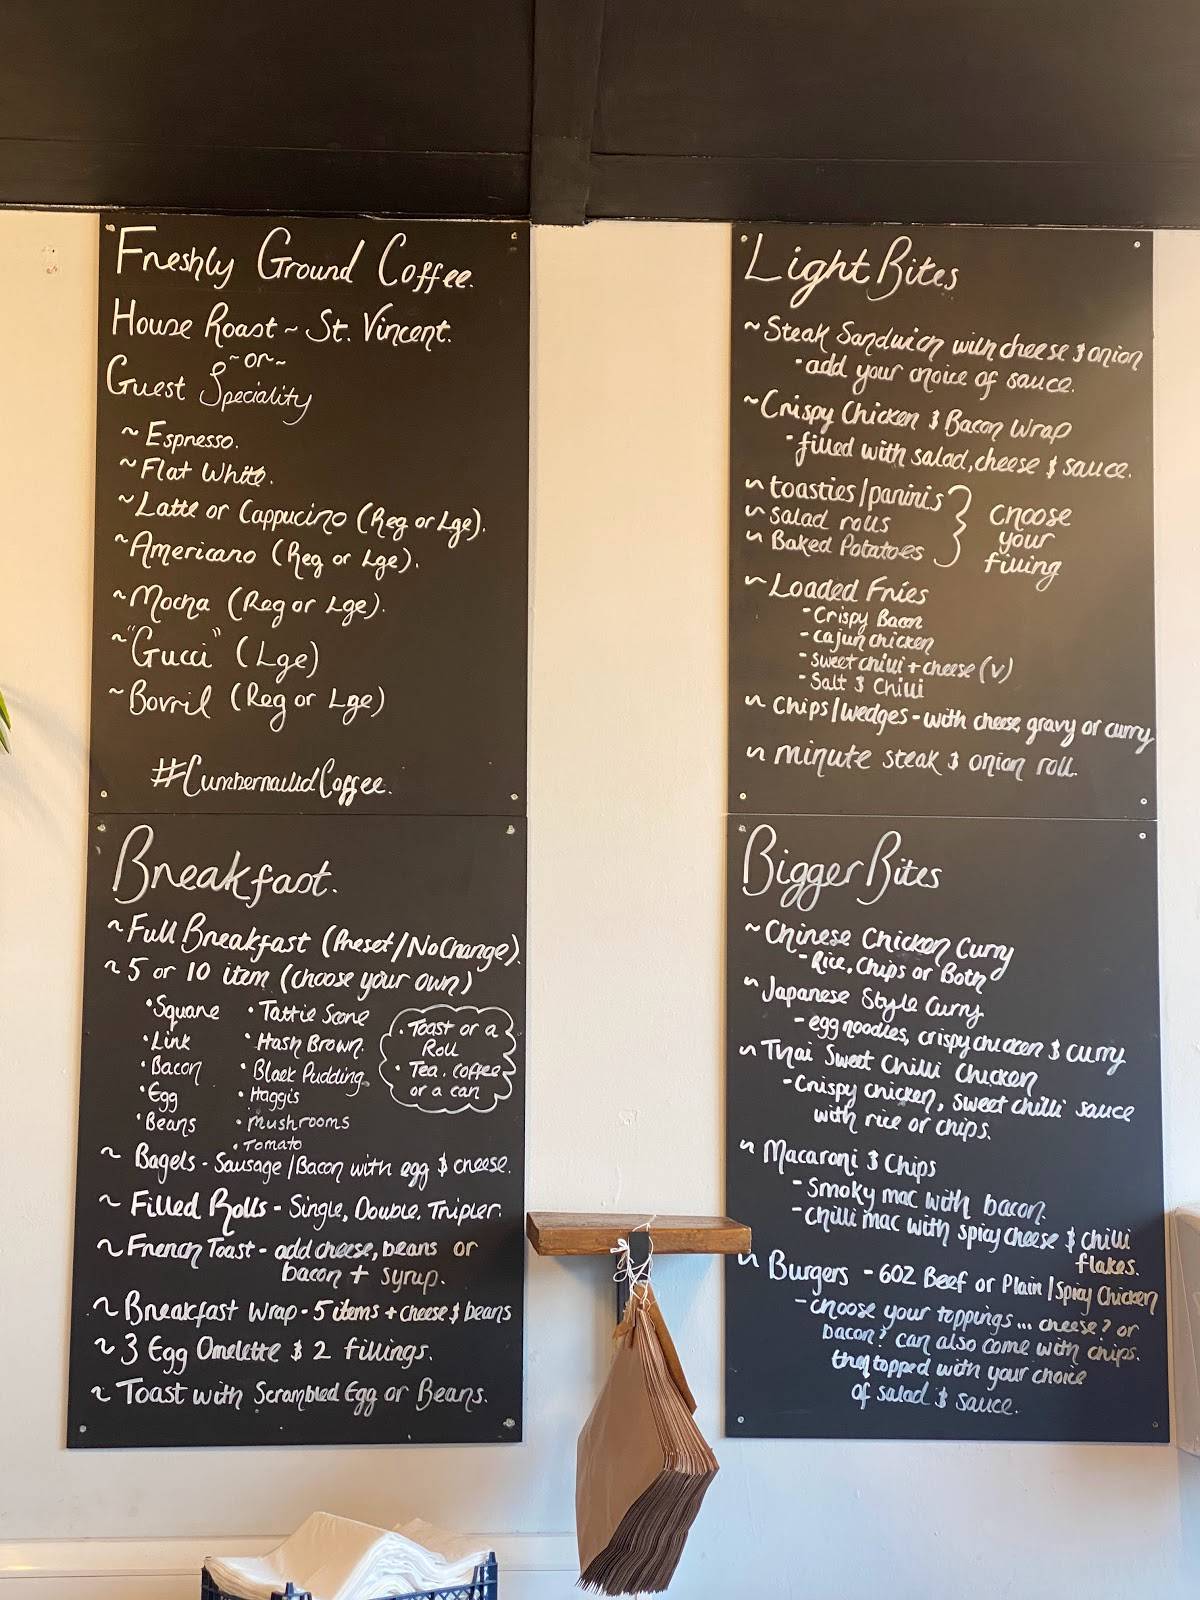 Freshly Ground Coffee.
House Roast ~ St. Vincent.
~or~
Guest Speciality
~ Espresso.
~ Flat White.
~ Latte or Cappucino (Reg or Lge).
~ Americano (Reg or Lge).
~ Mocha (Reg or Lge).
~ "Gucci" (Lge)
~ Bovril (Reg or Lge)
#CumbernauldCoffee.
Breakfast.
~ Full Breakfast (Preset/No Change).
~ 5 or 10 item (choose your own)
• Square
• Link
• Bacon
• Egg
• Beans
• Tattie Scone
• Hash Brown.
• Black Pudding
• Haggis
• mushrooms
• Tomato
• Toast or a
Roll
• Tea, coffee
or a can
~ Bagels - Sausage/Bacon with egg & cheese.
~ Filled Rolls - Single, Double, Tripler.
~ French Toast - add cheese, beans or
bacon + syrup.
~ Breakfast wrap - 5 items + cheese & beans
~ 3 Egg Omelette & 2 fillings.
~ Toast with Scrambled Egg or Beans.
Light Bites
~ Steak Sandwich with cheese & onion
- add your choice of sauce.
~ Crispy Chicken & Bacon Wrap
- filled with salad, cheese & sauce.
~ toasties/paninis
~ Salad rolls
~ Baked Potatoes
choose
your
filling
~ Loaded Fries
- Crispy Bacon
- cajun chicken
- sweet chilli + cheese (v)
- Salt & Chilli
~ Chips/Wedges - with cheese, gravy or curry
~ minute steak & onion roll.
Bigger Bites
~ Chinese Chicken Curry
- Rice, Chips or Both
~ Japanese Style Curry
- egg noodles, crispy chicken & curry
~ Thai Sweet Chilli Chicken
- Crispy chicken, sweet chilli sauce
with rice or chips.
~ Macaroni & Chips
- Smoky mac with bacon.
- Chilli mac with spicy cheese & chilli
flakes.
~ Burgers - 6OZ Beef or Plain/Spicy Chicken
- choose your toppings... cheese? or
bacon? can also come with chips.
then topped with your choice
of salad & sauce.